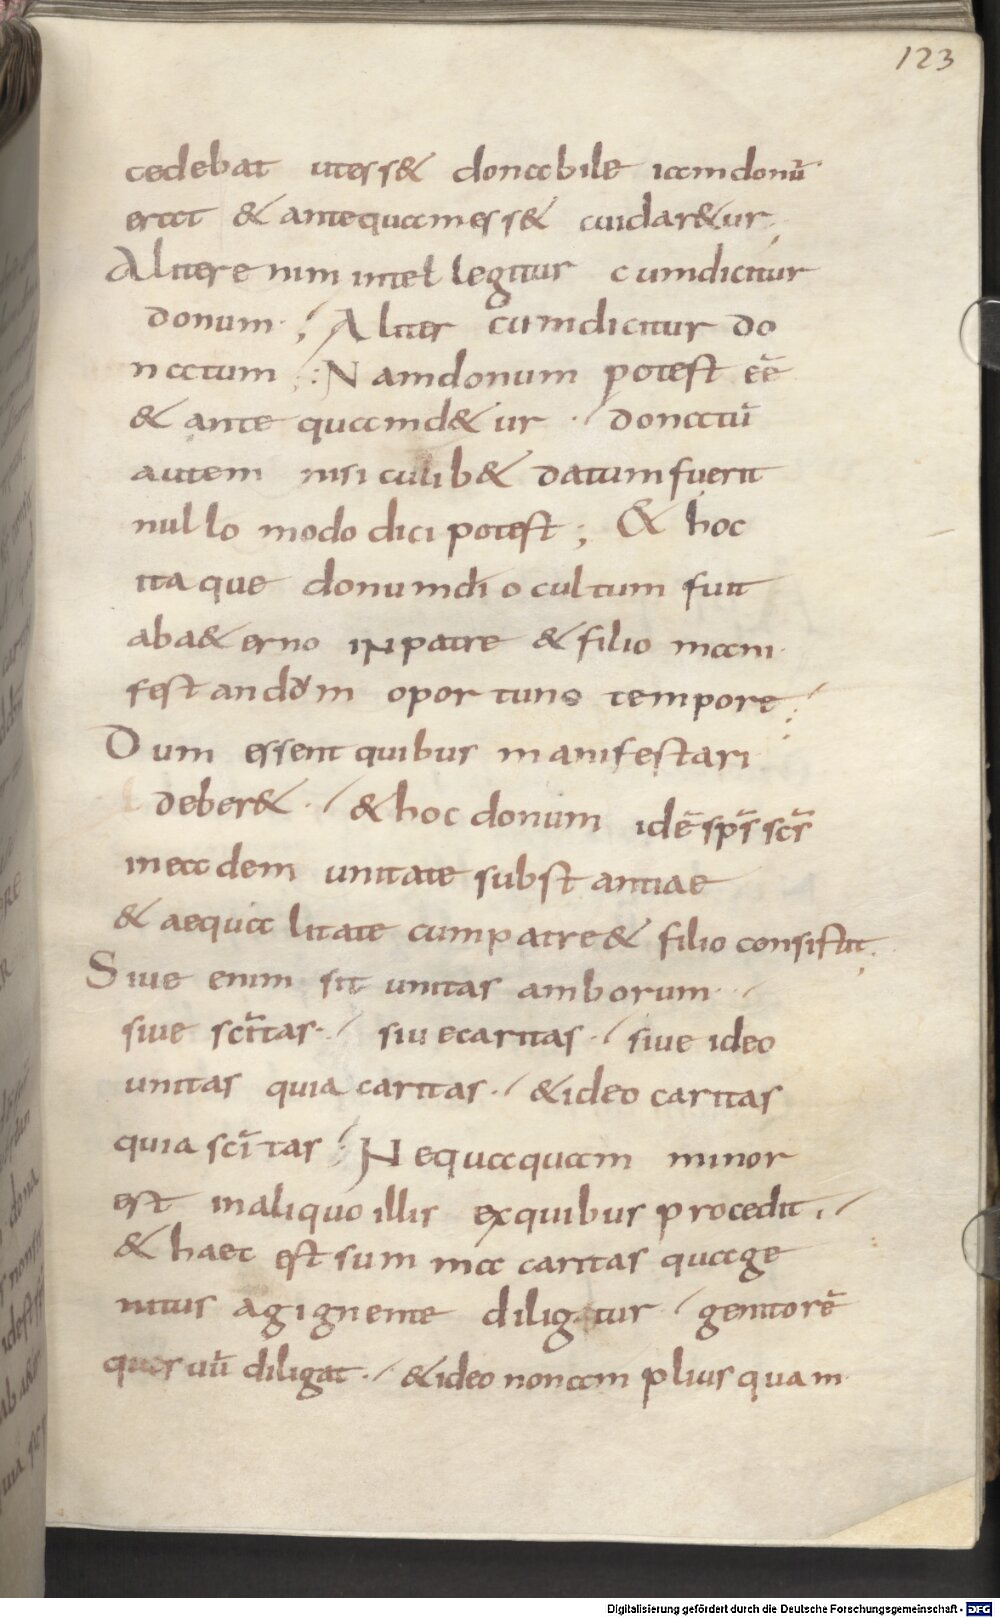 123
cedebat utess& donabile iamdonū
erat & antequamess& cuidar&ur;
Aliterenim intellegitur cumdicitur
donum; Aliter cumdicitur do
natum; Namdonum potest eē
& ante quamd&ur · donatū
autem nisi culib& datumfuerit
nullo modo dici potest; & hoc
itaque donumdi ocultum fuit
aba&erno inpatre & filio mani
festandom oportuno tempore;
Dum essent quibus manifestari
deber& · & hoc donum idē sps̄ scs̄
ineadem unitate substantiae
& aequalitate cumpatre& filio consistit.
Siue enim sit unitas amborum ·
siue sc̄itas · siuecaritas · siue ideo
unitas quia caritas · &ideo caritas
quia sc̄itas; Nequaquam minor
est inaliquo illis exquibus procedit ·
& haec est summa caritas quage
nitus agignente diligitur genitorē
quesuū diligat · &ideo nonam plius quam
Digitalisierung gefördert durch die Deutsche Forschungsgemeinschaft - DFG